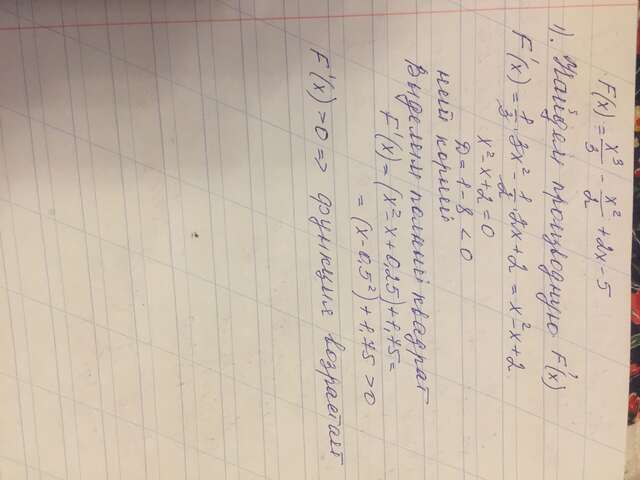 F(x) = x³/3 - x²/2 + 2x - 5
1). Найдём производную F'(x)
F'(x) = 1/3 · 3x² - 1/2 · 2x + 2 = x² - x + 2
x² - x + 2 = 0
D = 1 - 8 < 0
ний корний
Выделим полный квадрат
F'(x) = (x² - x + 0,25) + 1,75 =
= (x - 0,5²) + 1,75 > 0
F'(x) > 0 => функция возрастает